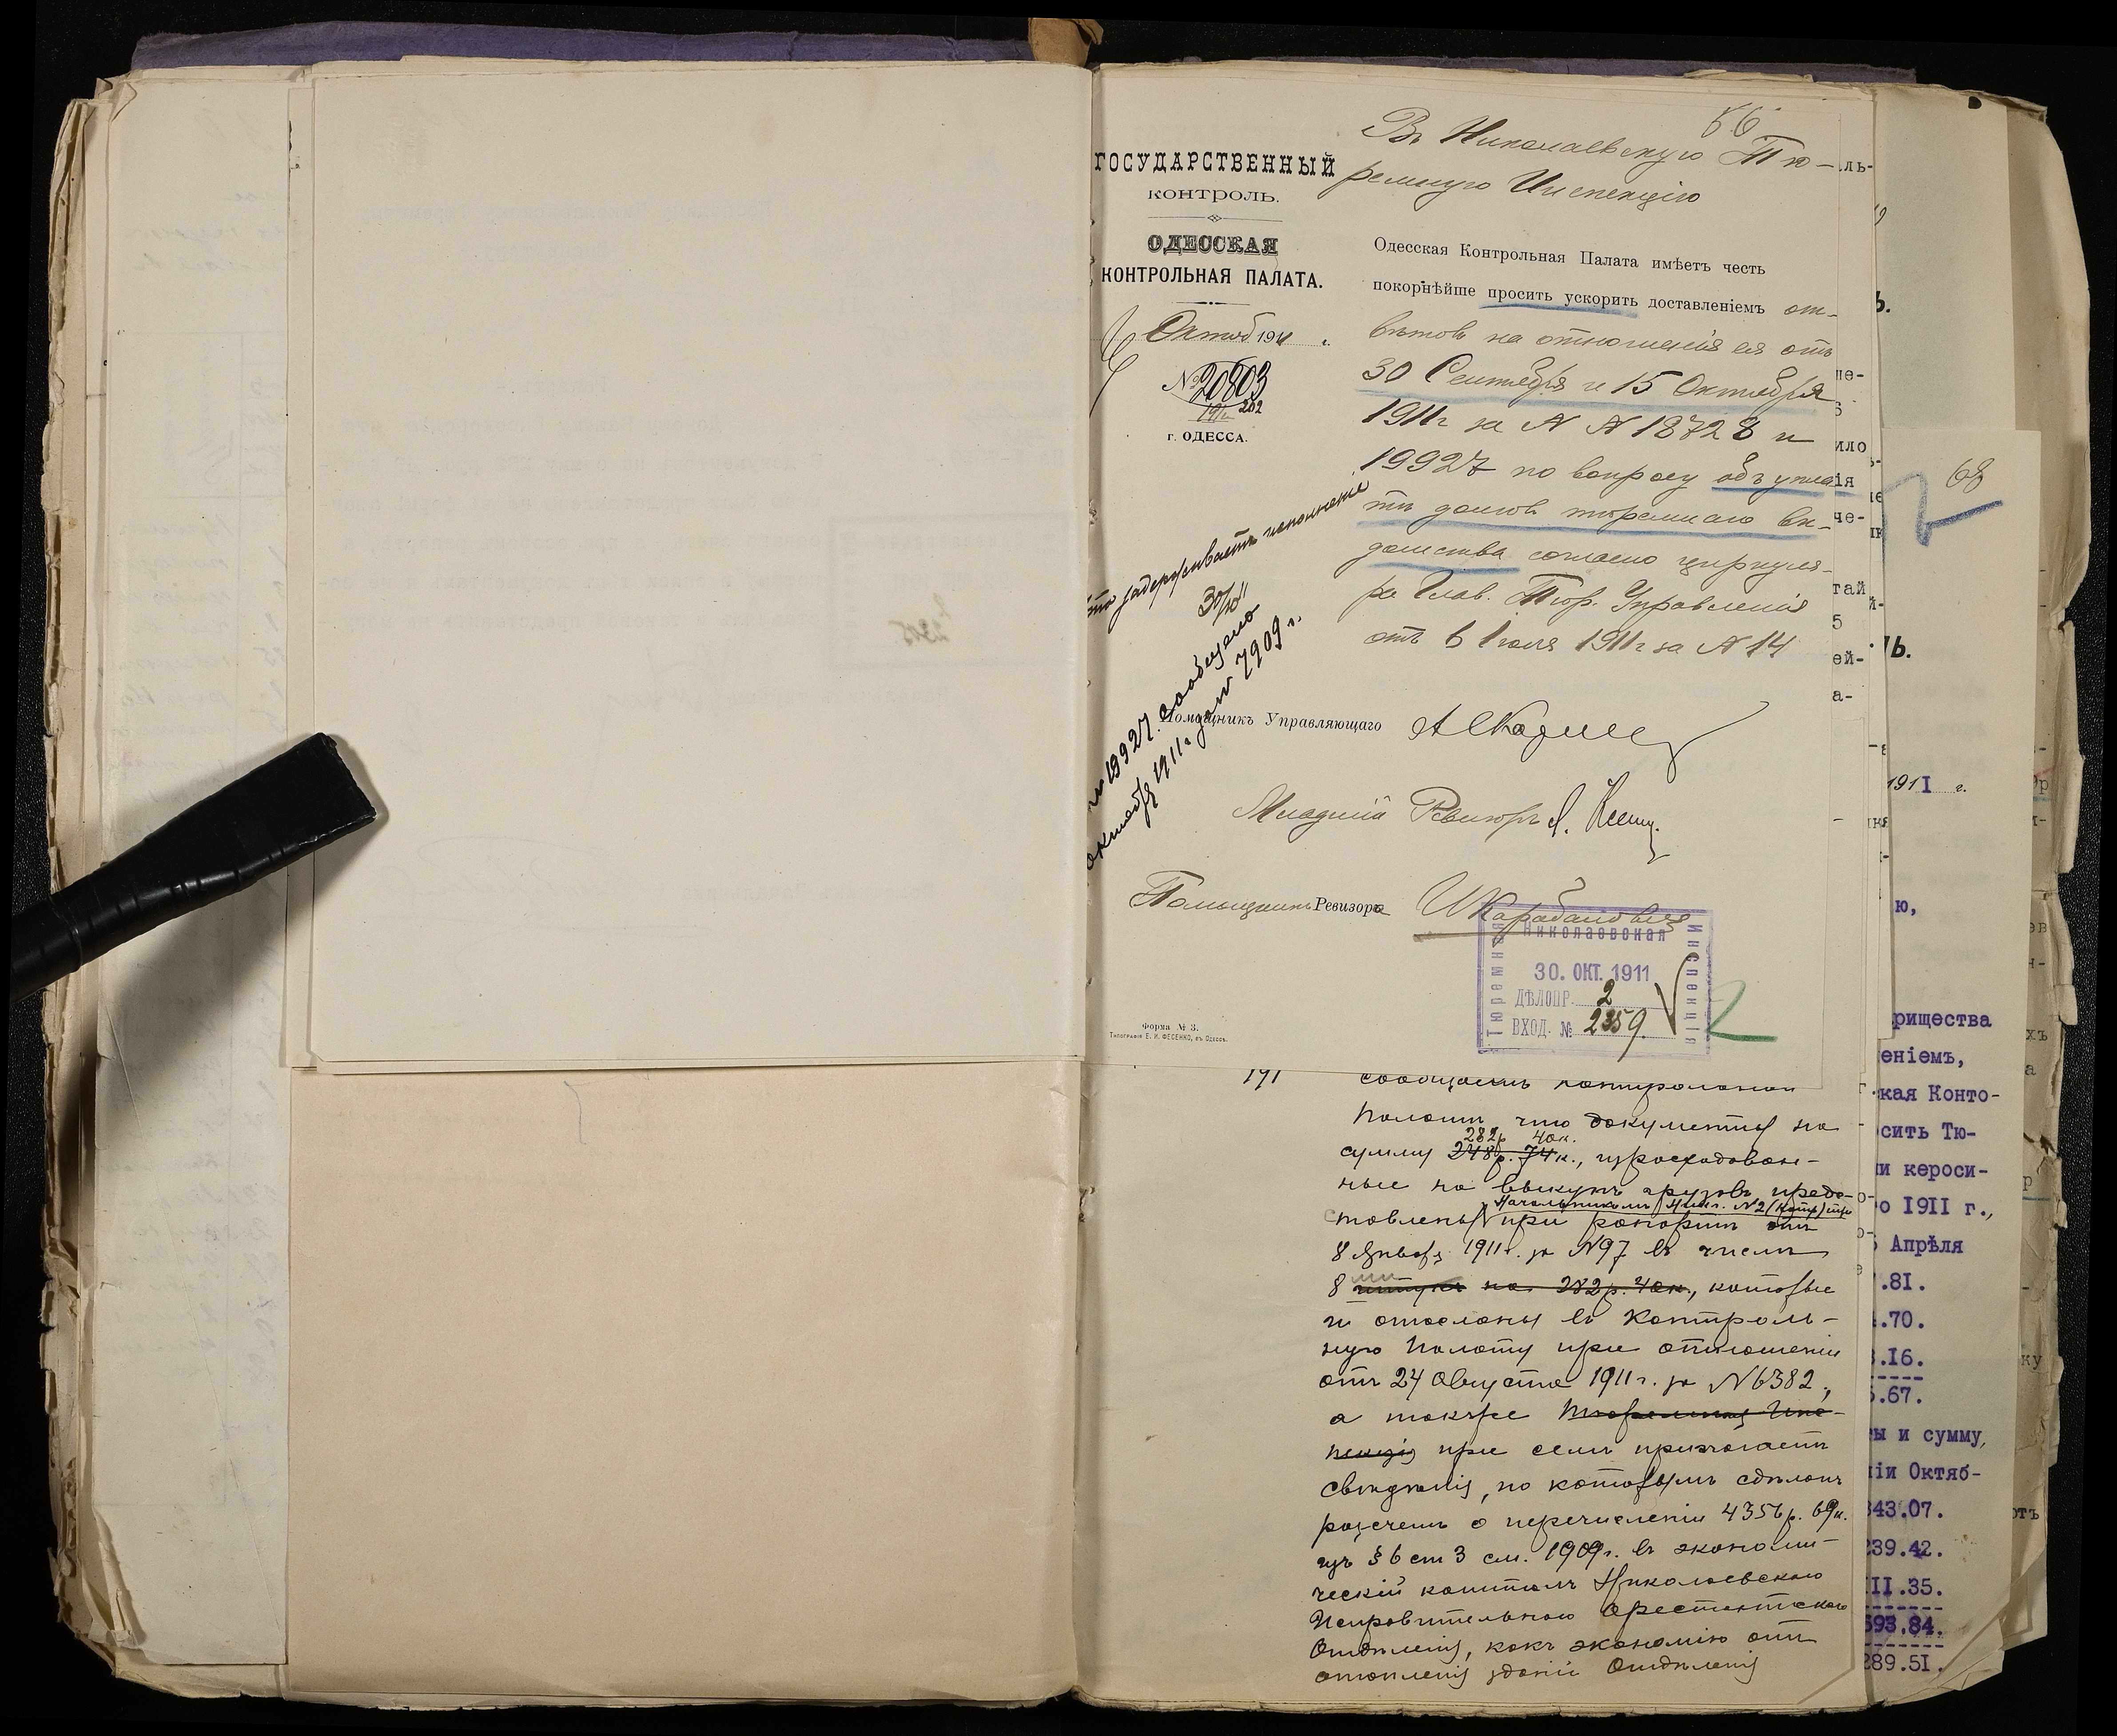 66
ГОСУДАРСТВЕННЫЙ
КОНТРОЛЬ.
ОДЕССКАЯ
КОНТРОЛЬНАЯ ПАЛАТА.
Октяб 1911 г.
№ 20803
г. ОДЕССА.
Въ Николаевскую Тю-
ремную Инспекцію
Одесская Контрольная Палата имѣетъ честь
покорнѣйше просить ускорить доставленіемъ от-
вѣтовъ на отношенія ея отъ
30 Сентября и 15 Октября
1911г за № № 18728 и
19927 по вопросу объ упла-
тѣ долговъ тюремнаго вѣ-
домства согласно циркуля-
ра Глав. Тюр. Управленія
отъ 6 Іюля 1911г за № 14
задерживаетъ исполненіе
30/X
19927. сообщено
октября 1911г за № 7909 г.
Помощникъ Управляющаго
Младшій Ревизоръ
Помощникъ Ревизора
Николаевская
Тюремная
Инспекція
30. ОКТ. 1911
ДѢЛОПР. 2
ВХОД. № 2359.
Форма № 3.
Типографія Е. И. ФЕСЕНКО, въ Одессѣ.
191
сообщаетъ контрольной
Палатѣ что документы на
282р. 40к.
сумму 248р. 74к., израсходован-
ные на выкупъ грузовъ предс-
Начальникомъ Ник. №2
тавлены при рапортѣ отъ
8 Января 1911г. за №97 въ числѣ
8 штукъ на 282р. 40к., которые
и отосланы въ Контроль-
ную Палату при отношеніи
отъ 24 Августа 1911г. за №6382,
а также Тюремная Инс-
пекція при семъ прилагаетъ
свѣдѣнія, по которымъ сдѣланъ
разсчетъ о перечисленіи 4356р. 69к.
изъ § 6 ст 3 см. 1909г. въ экономи-
ческій капиталъ Николаевскаго
Исправительнаго Арестантскаго
Отдѣленія, какъ экономію отъ
отопленія зданій Отдѣленія
68
1911 г.
рищества
еніемъ,
ская Конто-
сить Тю-
и кероси-
о 1911 г.,
Апрѣля
.81.
.70.
.16.
.67.
ы и сумму,
ніи Октяб-
343.07.
239.42.
III.35.
693.84.
289.51.